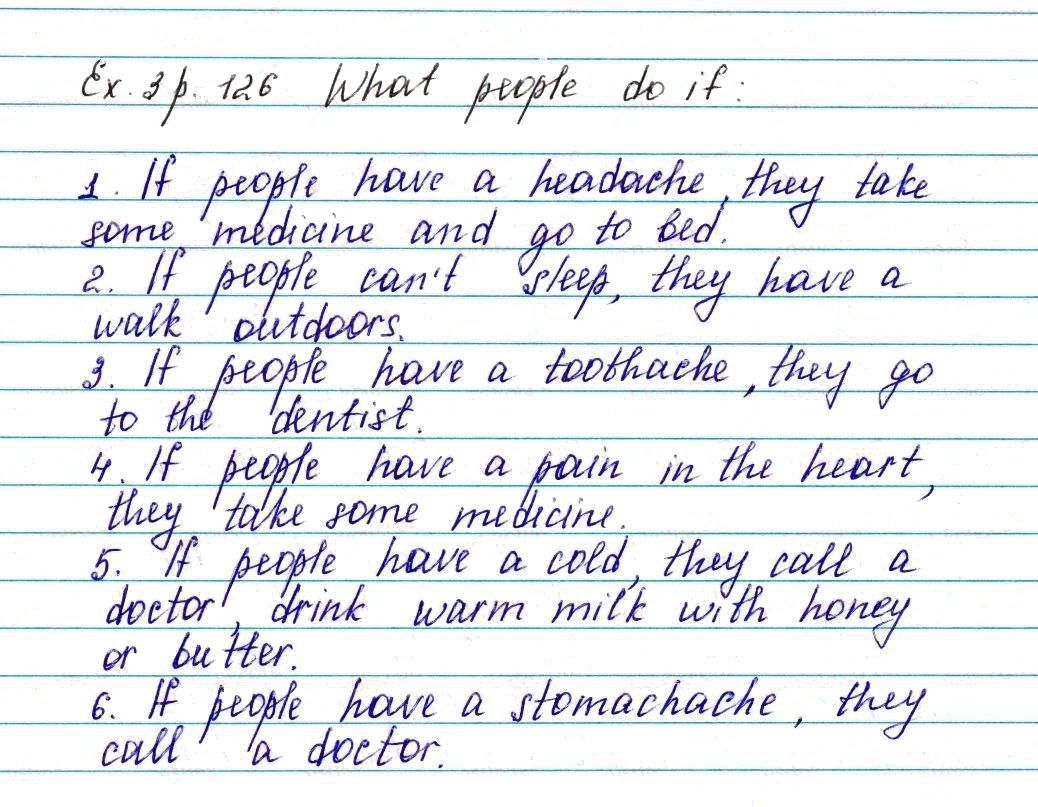 Ex. 3 p. 126 What people do if:
1. If people have a headache, they take
some medicine and go to bed.
2. If people can't sleep, they have a
walk outdoors.
3. If people have a toothache, they go
to the dentist.
4. If people have a pain in the heart,
they take some medicine.
5. If people have a cold, they call a
doctor, drink warm milk with honey
or butter.
6. If people have a stomachache, they
call a doctor.